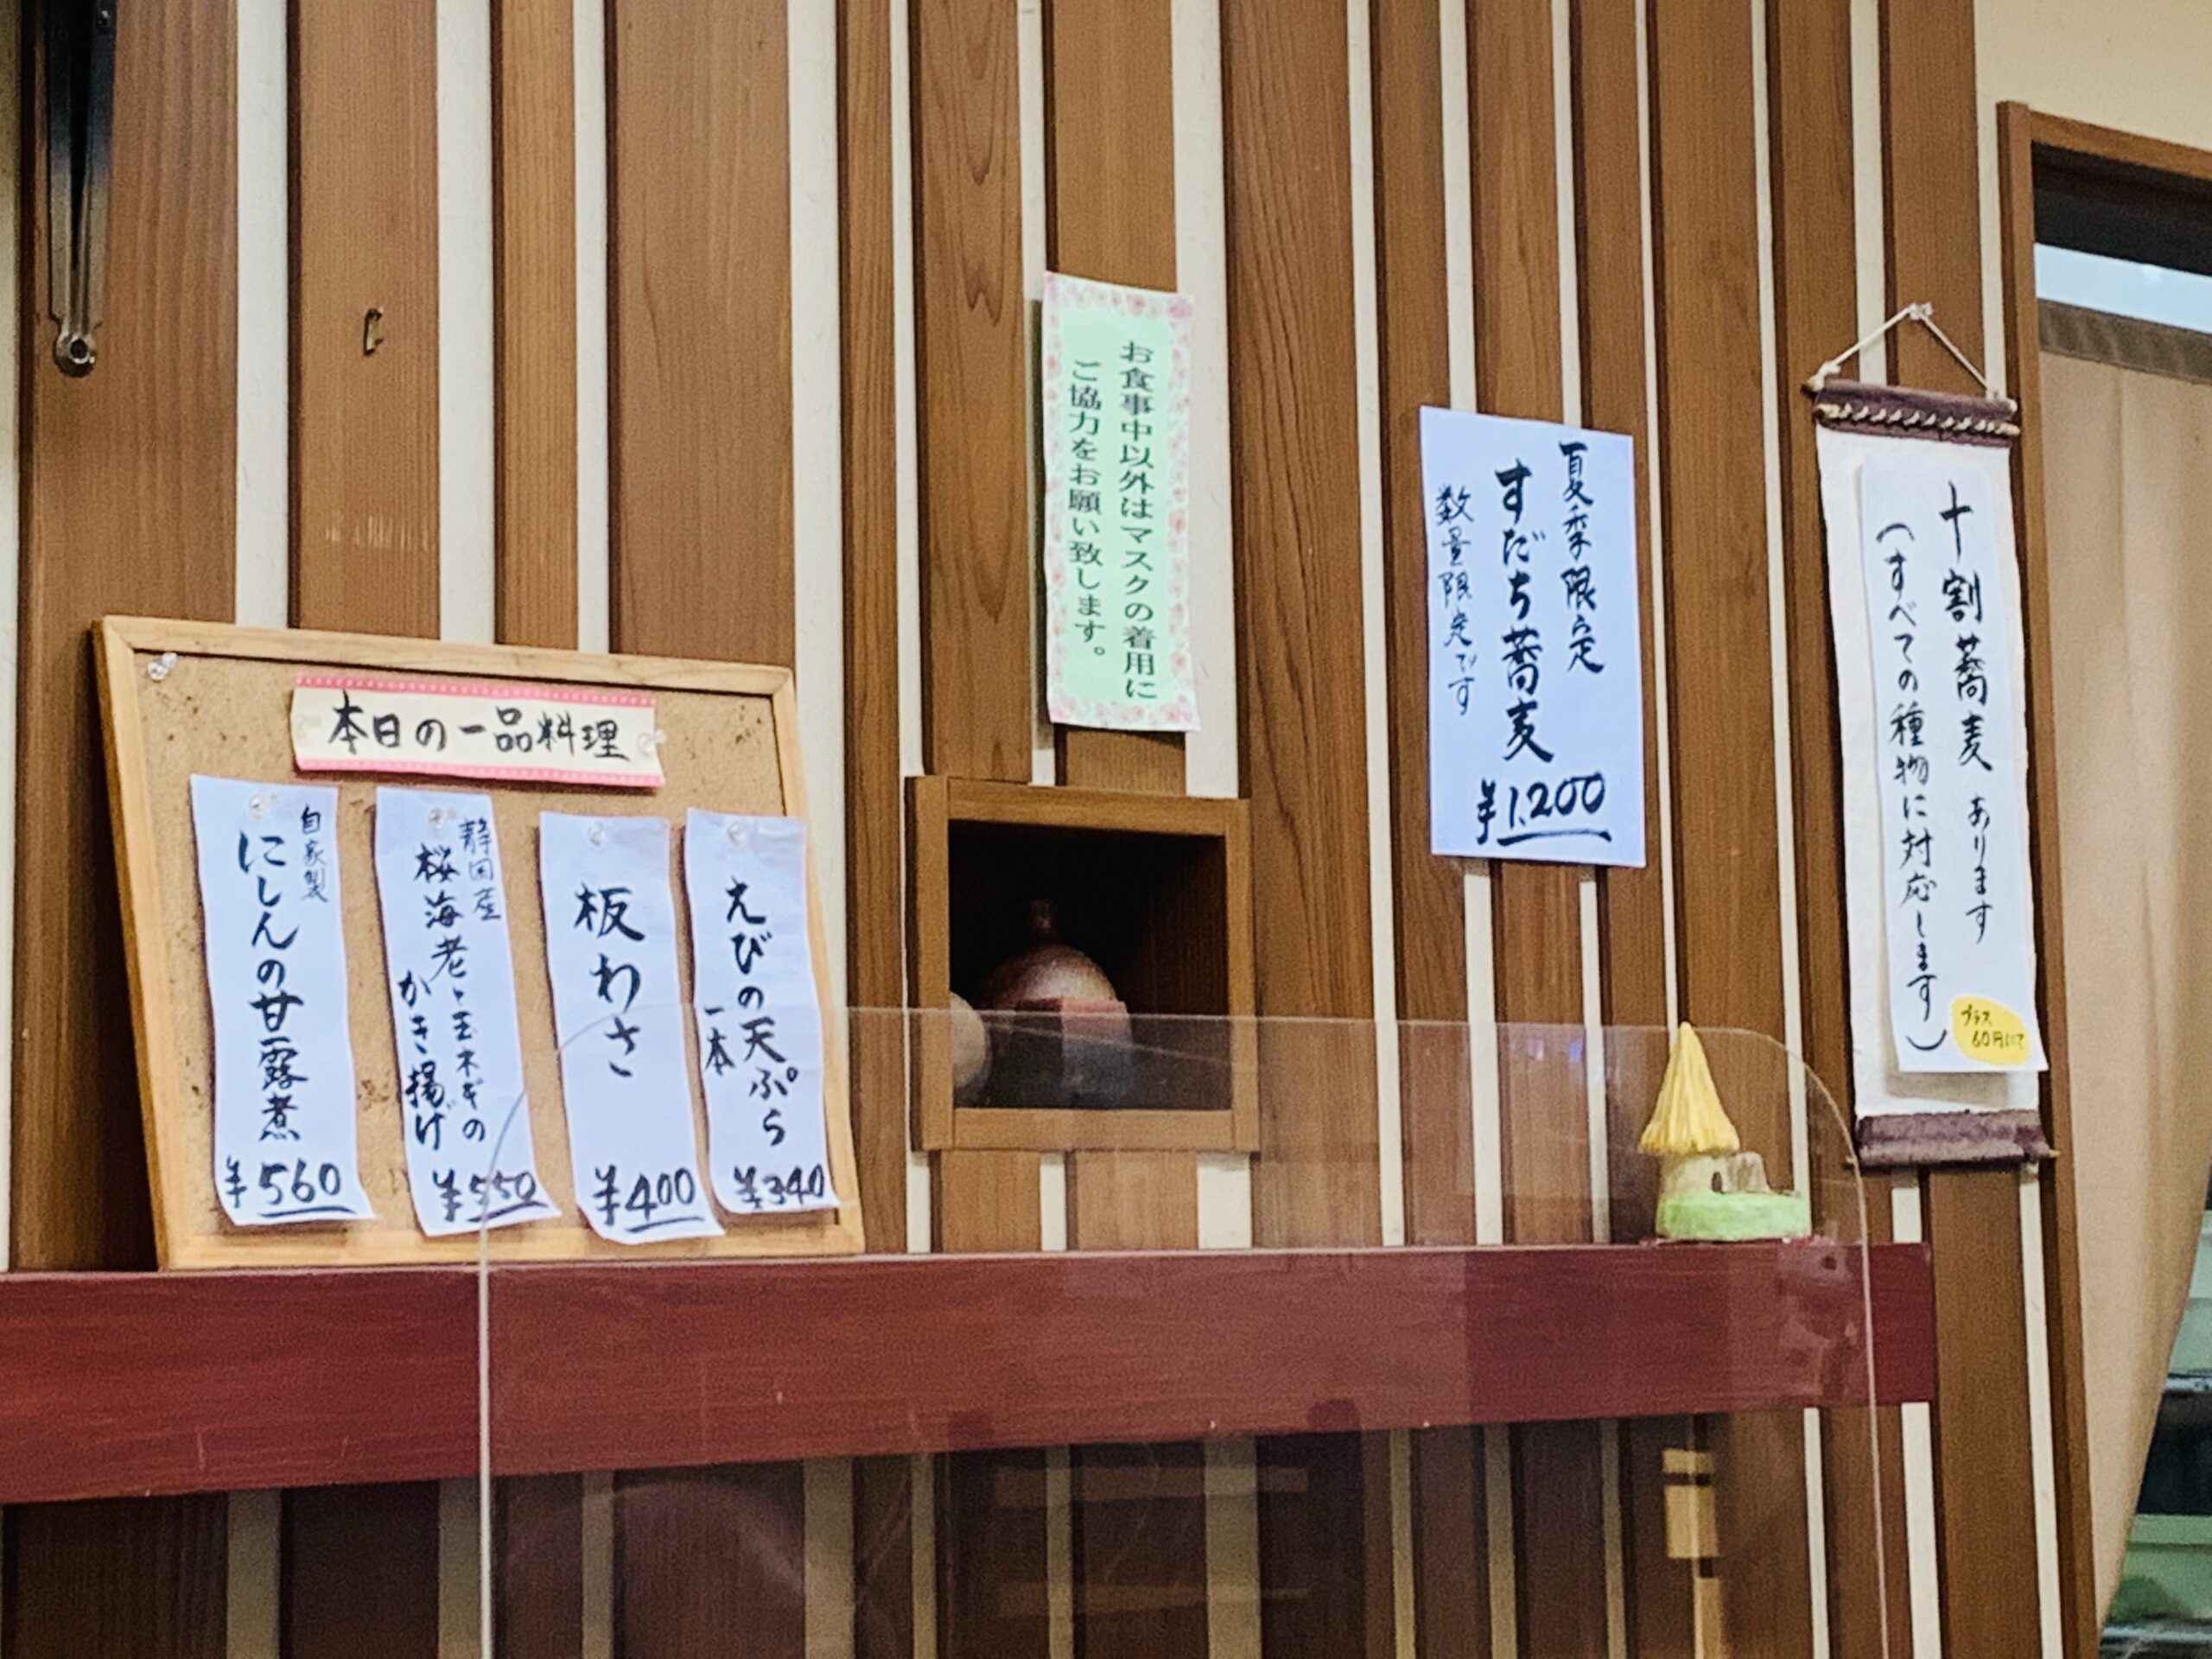 本日の一品料理
自家製
にしんの甘露煮
¥560
静岡産
桜海老と玉ネギの
かき揚げ
¥550
板わさ
¥400
えびの天ぷら
一本
¥340
お食事中以外はマスクの着用に
ご協力をお願い致します。
夏季限定
すだち蕎麦
数量限定です
¥1,200
十割蕎麦 あります
(すべての種物に対応します)
プラス
60円にて